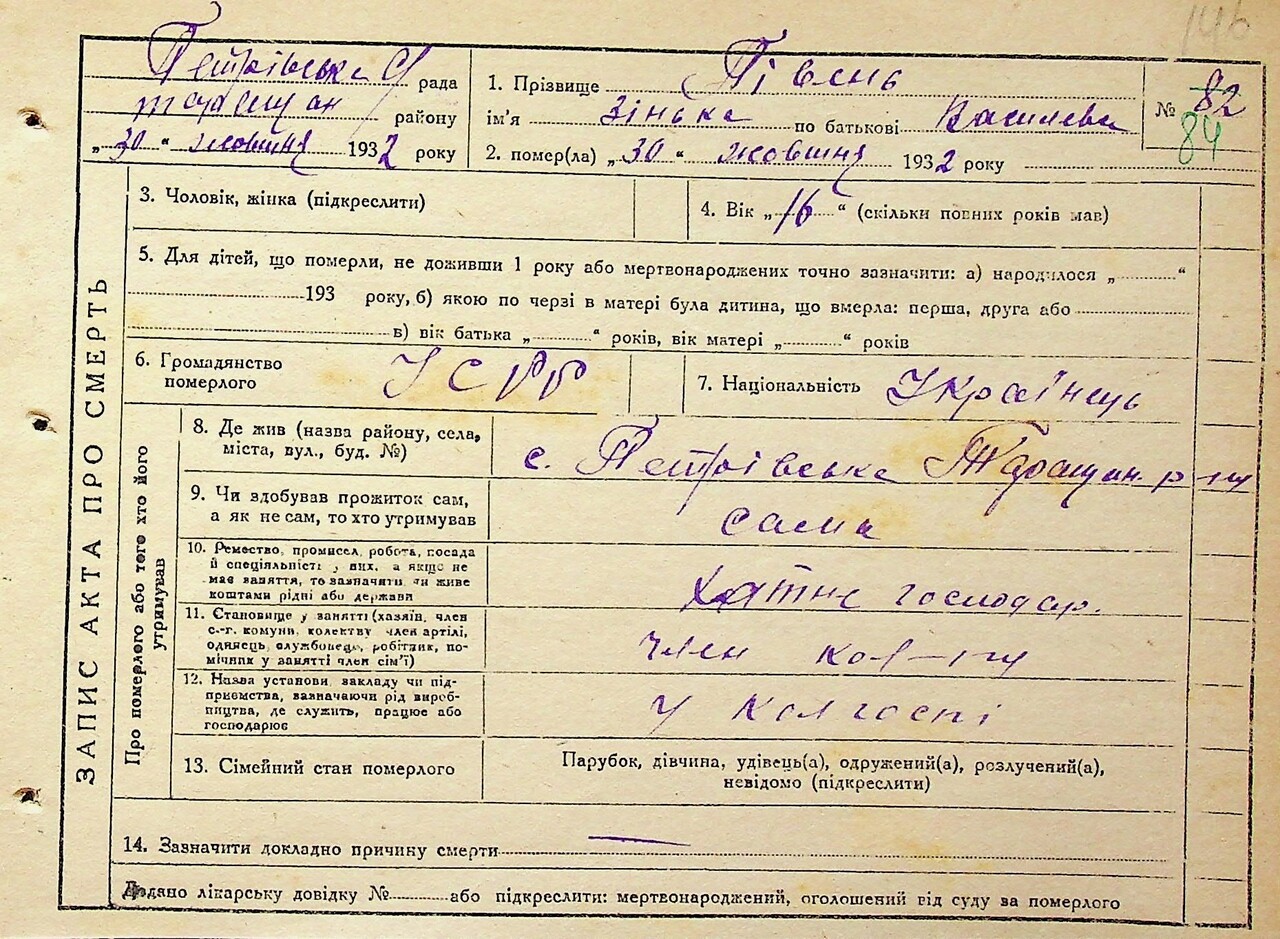 146
Петрівська с/рада
Таращан району
„30“ жовтня 1932 року
1. Прізвище Півень
ім'я Зінька по батькові Василева
2. помер(ла) „30“ жовтня 1932 року
№ 82
84
ЗАПИС АКТА ПРО СМЕРТЬ
3. Чоловік, жінка (підкреслити)
4. Вік „16“ (скільки повних років мав)
5. Для дітей, що померли, не доживши 1 року або мертвонароджених точно зазначити: а) народилося „ “
193 року, б) якою по черзі в матері була дитина, що вмерла: перша, друга або
в) вік батька „ “ років, вік матері „ “ років
6. Громадянство
померлого
УСРР
7. Національність Українець
Про померлого або того хто його
утримував
8. Де жив (назва району, села,
міста, вул., буд. №)
с. Петрівська Таращан. р-ну
9. Чи здобував прожиток сам,
а як не сам, то хто утримував
сама
10. Ремество, промисел, робота, посада
й спеціяльність у них, а якщо не
має заняття, то зазначити чи живе
коштами рідні або держави
Хатнє господар.
11. Становище у занятті (хазяїн, член
с.-г. комуни, колективу член артілі,
одинець, службовець, робітник, по-
мічник у занятті член сім'ї)
член кол-пу
12. Назва установи, закладу чи під-
приємства, зазначаючи рід вироб-
ництва, де служить, працює або
господарює
У колгоспі
13. Сімейний стан померлого
Парубок, дівчина, удівець(а), одружений(а), розлучений(а),
невідомо (підкреслити)
14. Зазначити докладно причину смерти —
Додано лікарську довідку № або підкреслити: мертвонароджений, оголошений від суду за померлого